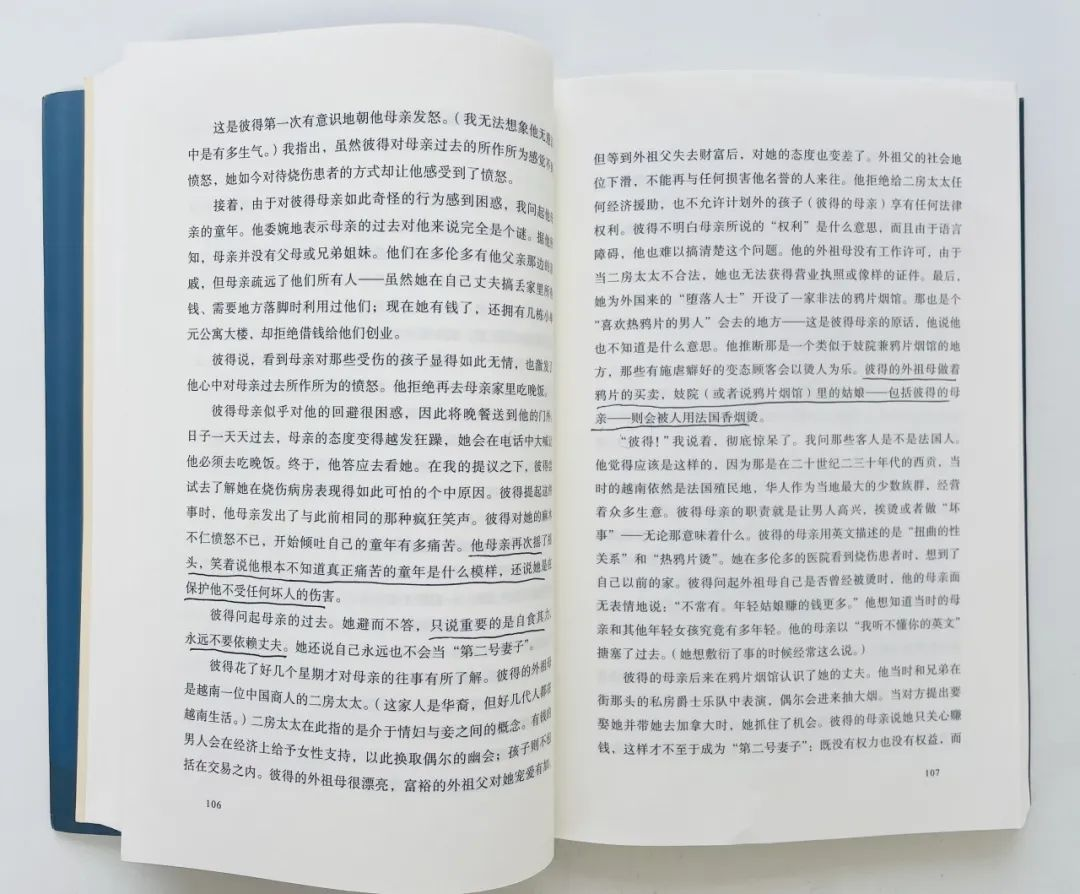 这是彼得第一次有意识地朝他母亲发怒。（我无法想象他无意识
中是有多生气。）我指出，虽然彼得对母亲过去的所作所为感觉不到
愤怒，她如今对待烧伤患者的方式却让他感受到了愤怒。
接着，由于对彼得母亲如此奇怪的行为感到困惑，我问起他母
亲的童年。他委婉地表示母亲的过去对他来说完全是个谜。据他所
知，母亲并没有父母或兄弟姐妹。他们在多伦多有他父亲那边的亲
戚，但母亲疏远了他们所有人——虽然她在自己丈夫搞丢家里所有
钱、需要地方落脚时利用过他们；现在她有钱了，还拥有几栋小单
元公寓大楼，却拒绝借钱给他们创业。
彼得说，看到母亲对那些受伤的孩子显得如此无情，也激发了
他心中对母亲过去所作所为的愤怒。他拒绝再去母亲家里吃晚饭。
彼得母亲似乎对他的回避很困惑，因此将晚餐送到他的门外。
日子一天天过去，母亲的态度变得越发狂躁，她会在电话中大喊
他必须去吃晚饭。终于，他答应去看她。在我的提议之下，彼得尝
试去了解她在烧伤病房表现得如此可怕的个中原因。彼得提起这件
事时，他母亲发出了与此前相同的那种疯狂笑声。彼得对她的麻木
不仁愤怒不已，开始倾吐自己的童年有多痛苦。他母亲再次摇了摇
头，笑着说他根本不知道真正痛苦的童年是什么模样，还说她是在
保护他不受任何坏人的伤害。
彼得问起母亲的过去。她避而不答，只说重要的是自食其力，
永远不要依赖丈夫。她还说自己永远也不会当“第二号妻子”。
彼得花了好几个星期才对母亲的往事有所了解。彼得的外祖母
是越南一位中国商人的二房太太。（这家人是华裔，但好几代人都在
越南生活。）二房太太在此指的是介于情妇与妾之间的概念。有钱的
男人会在经济上给予女性支持，以此换取偶尔的幽会；孩子则不包
括在交易之内。彼得的外祖母很漂亮，富裕的外祖父对她宠爱有加。
106
但等到外祖父失去财富后，对她的态度也变差了。外祖父的社会地
位下滑，不能再与任何损害他名誉的人来往。他拒绝给二房太太任
何经济援助，也不允许计划外的孩子（彼得的母亲）享有任何法律
权利。彼得不明白母亲所说的“权利”是什么意思，而且由于语言
障碍，他也难以搞清楚这个问题。他的外祖母没有工作许可，由于
当二房太太不合法，她也无法获得营业执照或像样的证件。最后，
她为外国来的“堕落人士”开设了一家非法的鸦片烟馆。那也是个
“喜欢热鸦片的男人”会去的地方——这是彼得母亲的原话，他说他
也不知道是什么意思。他推断那是一个类似于妓院兼鸦片烟馆的地
方，那些有施虐癖好的变态顾客会以烫人为乐。彼得的外祖母做着
鸦片的买卖，妓院（或者说鸦片烟馆）里的姑娘——包括彼得的母
亲——则会被人用法国香烟烫。
“彼得！”我说着，彻底惊呆了。我问那些客人是不是法国人。
他觉得应该是这样的，因为那是在二十世纪二三十年代的西贡，当
时的越南依然是法国殖民地，华人作为当地最大的少数族群，经营
着众多生意。彼得母亲的职责就是让男人高兴，挨烫或者做“坏
事”——无论那意味着什么。彼得的母亲用英文描述的是“扭曲的性
关系”和“热鸦片烫”。她在多伦多的医院看到烧伤患者时，想到了
自己以前的家。彼得问起外祖母自己是否曾经被烫时，他的母亲面
无表情地说：“不常有。年轻姑娘赚的钱更多。”他想知道当时的母
亲和其他年轻女孩究竟有多年轻。他的母亲以“我听不懂你的英文”
搪塞了过去。（她想敷衍了事的时候经常这么说。）
彼得的母亲后来在鸦片烟馆认识了她的丈夫。他当时和兄弟在
街那头的私房爵士乐队中表演，偶尔会进来抽大烟。当对方提出要
娶她并带她去加拿大时，她抓住了机会。彼得的母亲说她只关心赚
钱，这样才不至于成为“第二号妻子”：既没有权力也没有权益，而
107